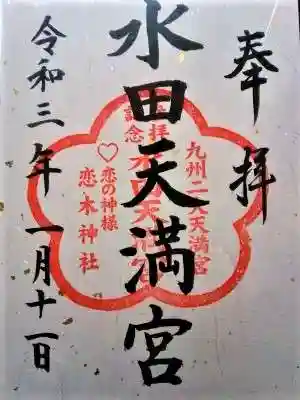 奉拝
水田天満宮
令和三年一月十一日
九州二大天満宮
参拝
記念
水田天満宮
♡恋の神様
恋木神社